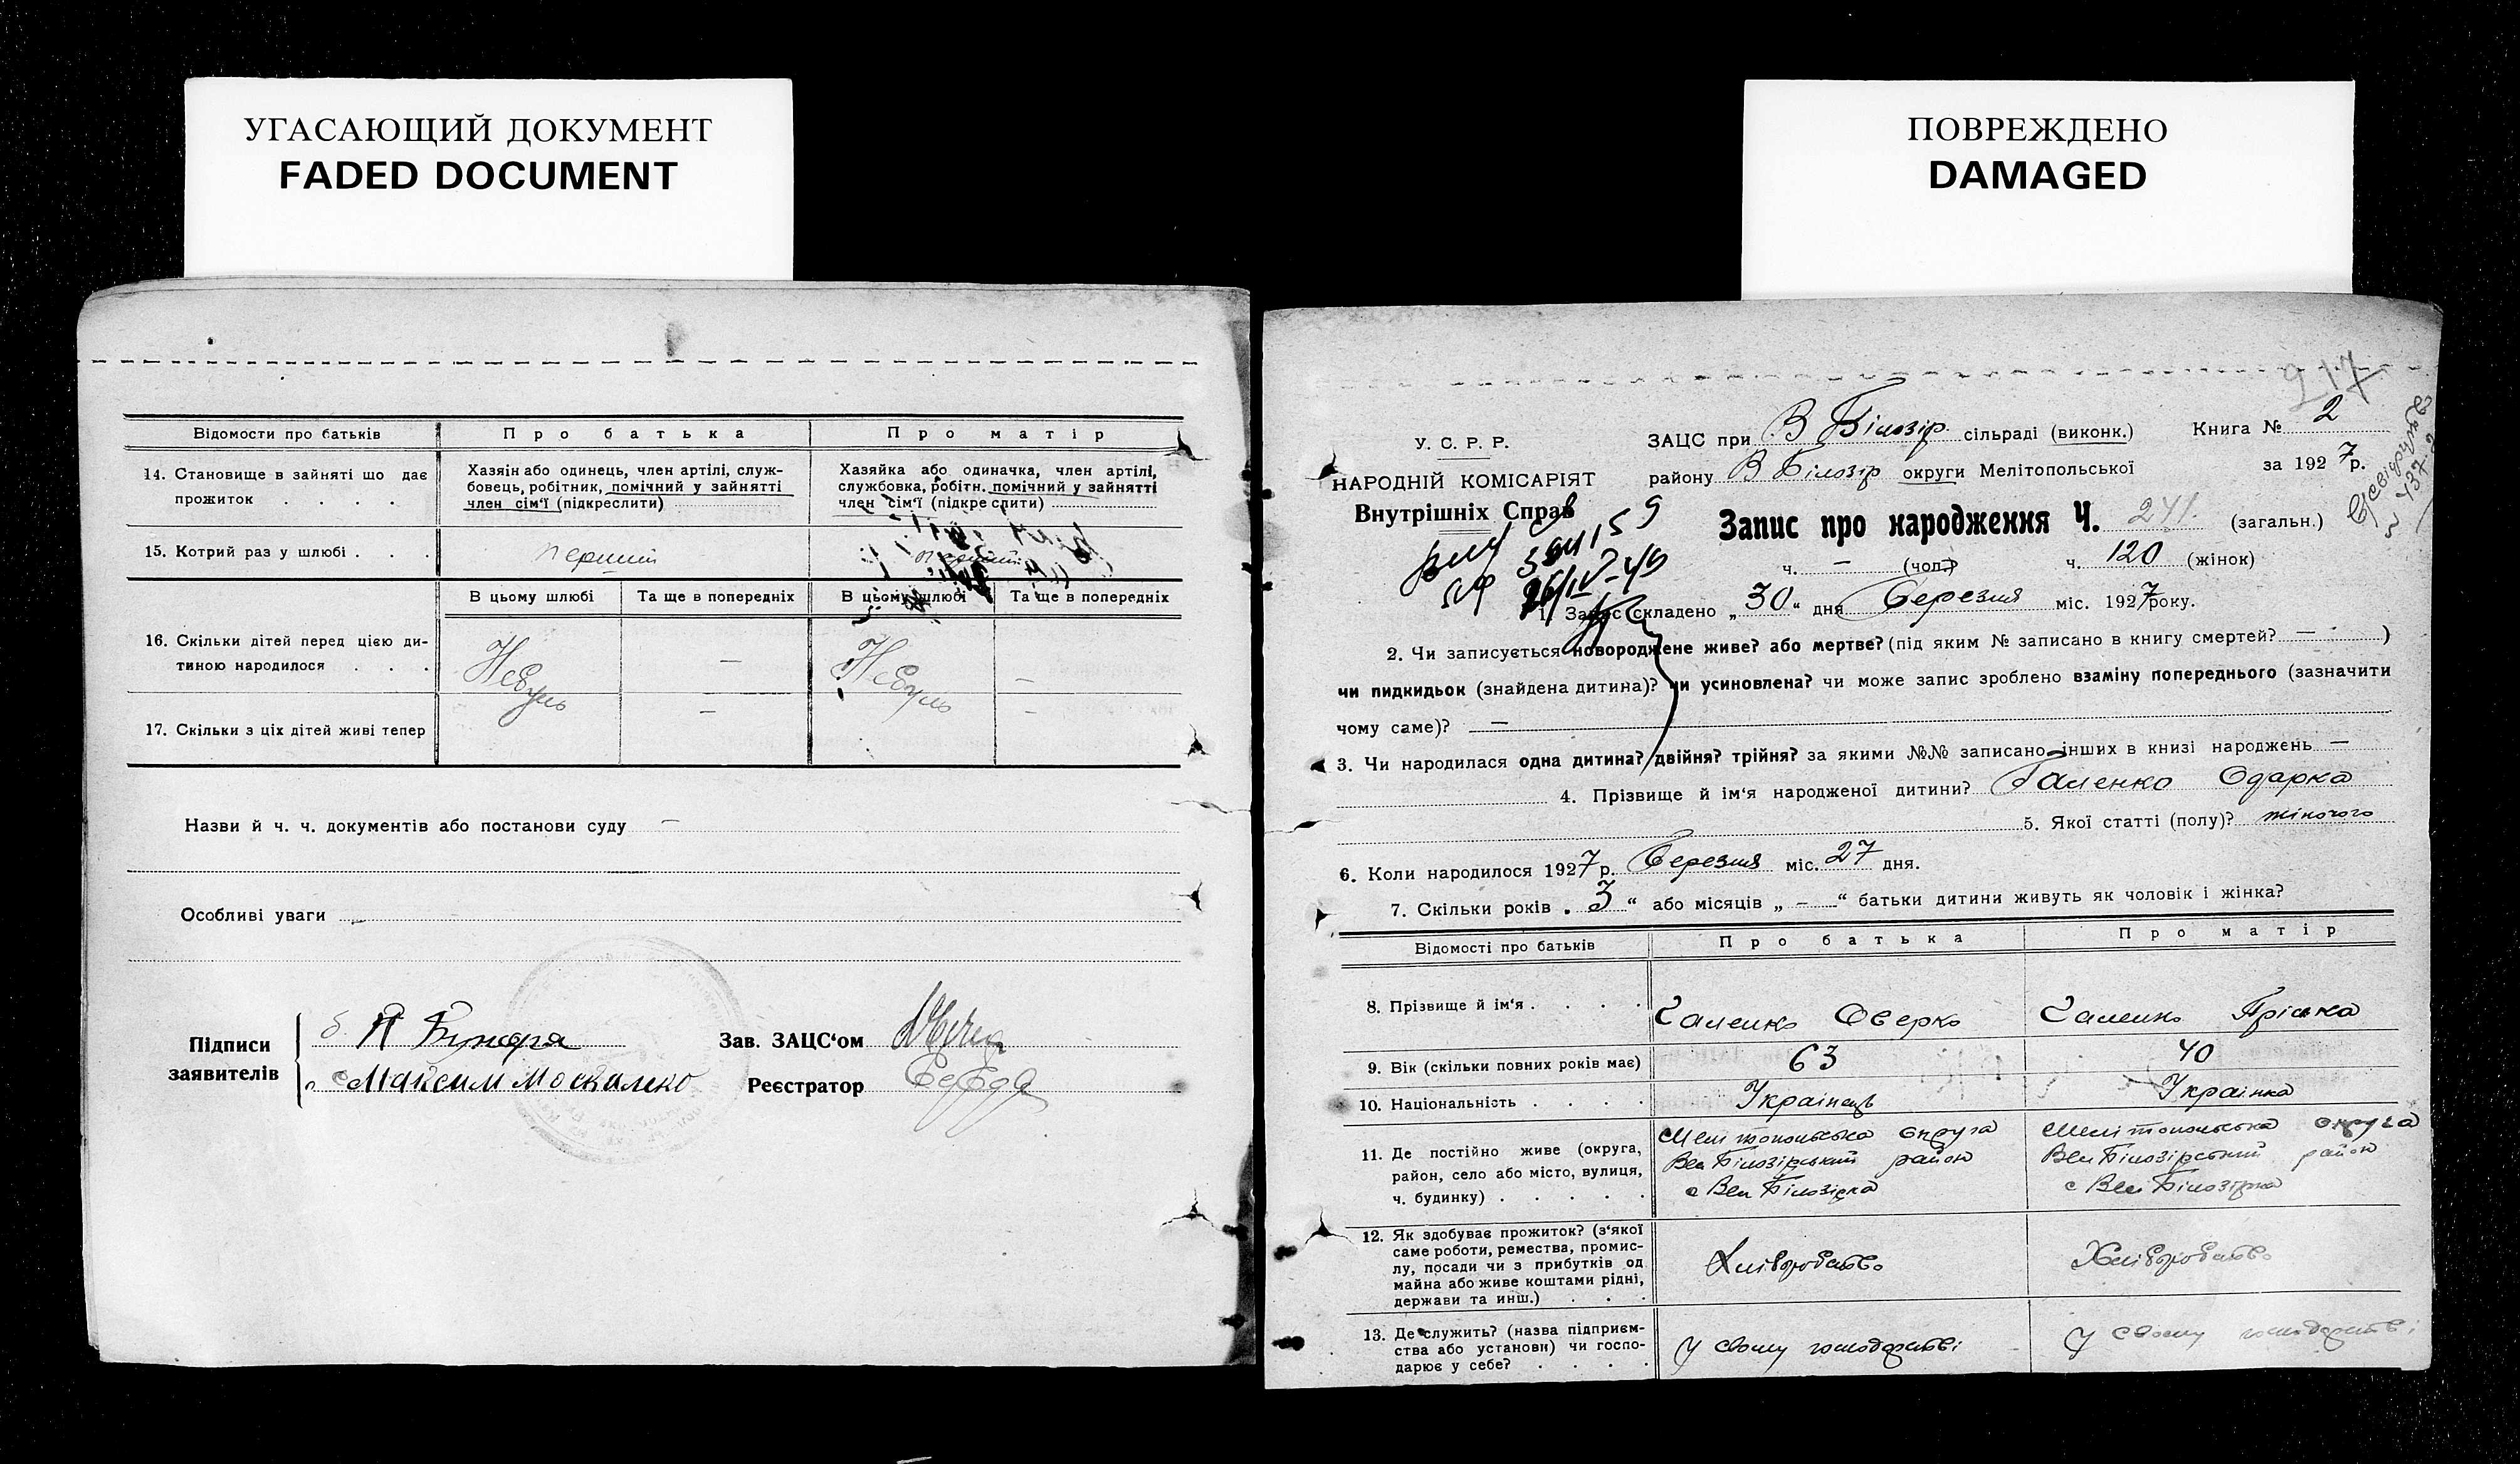 УГАСАЮЩИЙ ДОКУМЕНТ
FADED DOCUMENT
Відомости про батьків
Про батька
Про матір
14. Становище в зайняті що дає
прожиток . . . .
Хазяїн або одинець, член артілі, служ-
бовець, робітник, помічний у зайнятті
член сім'ї (підкреслити)
Хазяйка або одиначка, член артілі,
службовка, робітн. помічний у зайнятті
член сім'ї (підкреслити)
15. Котрий раз у шлюбі . . .
перший
В цьому шлюбі
Та ще в попередніх
В цьому шлюбі
Та ще в попередніх
16. Скільки дітей перед цією ди-
тиною народилося . . .
—
—
17. Скільки з ціх дітей живі тепер
—
—
Назви й ч. ч. документів або постанови суду —
Особливі уваги —
Підписи
заявителів
Максим Москаленко
Зав. ЗАЦС'ом
Реєстратор
ПОВРЕЖДЕНО
DAMAGED
917
У. С. Р. Р.
НАРОДНІЙ КОМІСАРІЯТ
Внутрішніх Справ
ЗАЦС при В Білозір сільраді (виконк.)
району В Білозір округи Мелітопольської
Книга № 2
за 1927р.
Запис про народження Ч. 241 (загальн.)
ч. — (чол.)
ч. 120 (жінок)
1. Запис складено „30“ дня Березня міс. 1927року.
2. Чи записується новороджене живе? або мертве? (під яким № записано в книгу смертей? — )
чи пидкидьок (знайдена дитина)? чи усиновлена? чи може запис зроблено взаміну попереднього (зазначити
чому саме)? —
3. Чи народилася одна дитина? двійня? трійня? за якими №№ записано інших в книзі народжень —
4. Прізвище й ім'я народженої дитини? Галенко Одарка
5. Якої статті (полу)? жіночого
6. Коли народилося 1927р. Березня міс. 27 дня.
7. Скільки років „3“ або місяців „ – “ батьки дитини живуть як чоловік і жінка?
Відомості про батьків
Про батька
Про матір
8. Прізвище й ім'я . . . .
Галенко Оверко
Галенко Пріська
9. Вік (скільки повних років має)
63
40
10. Національність . . . .
Українець
Українка
11. Де постійно живе (округа,
район, село або місто, вулиця,
ч. будинку) . . . . .
Мелітопольська округа
Вел Білозірський район
с Вел Білозірка
Мелітопольська округа
Вел Білозірський район
с Вел Білозірка
12. Як здобуває прожиток? (з'якої
саме роботи, ремества, промис-
лу, посади чи з прибутків од
майна або живе коштами рідні,
держави та инш.) . . .
Хліборобство
Хліборобство
13. Де служить? (назва підприєм-
ства або установи) чи госпо-
дарює у себе? . . . .
У свому господарстві
У свому господарстві